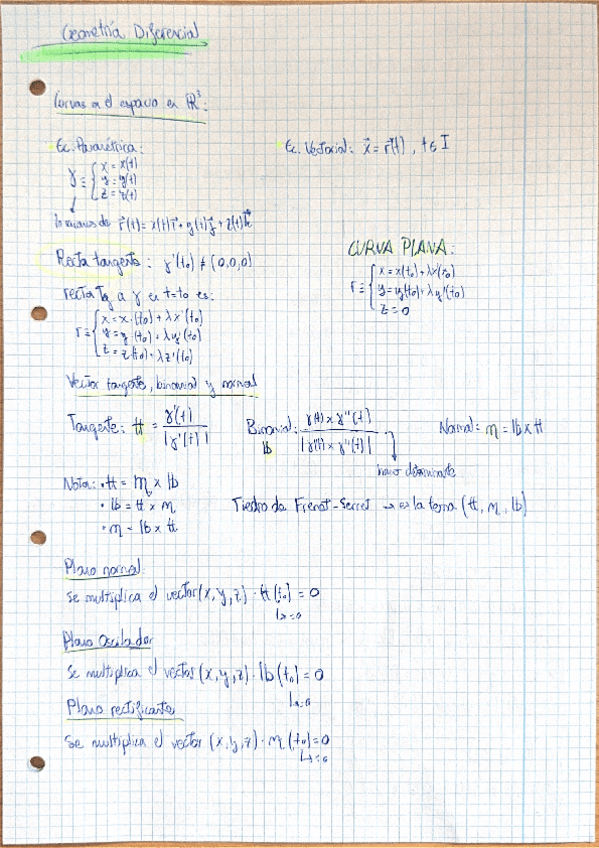 Geometría Diferencial
Curvas en el espacio en ℝ³:
Ec. Paramétrica:
Ec. Vectorial: x⃗ = r⃗(t), t ∈ I
γ ≡ { x = x(t)
y = y(t)
z = z(t)
lo sacamos de r⃗(t) = x(t)i⃗ + y(t)j⃗ + z(t)k⃗
Recta tangente: γ'(t₀) ≠ (0,0,0)
recta Tg a γ en t=t₀ es:
r ≡ { x = x(t₀) + λx'(t₀)
y = y(t₀) + λy'(t₀)
z = z(t₀) + λz'(t₀)
CURVA PLANA:
r ≡ { x = x(t₀) + λx'(t₀)
y = y(t₀) + λy'(t₀)
z = 0
Vector tangente, binormal y normal
Tangente: 𝕥 = γ'(t) / |γ'(t)|
Binormal: γ(t) × γ''(t) / |γ'(t) × γ''(t)|
𝕓
hacer determinante
Normal: 𝕟 = 𝕓 × 𝕥
Nota: • 𝕥 = 𝕟 × 𝕓
• 𝕓 = 𝕥 × 𝕟
• 𝕟 = 𝕓 × 𝕥
Triedro de Frenet-Serret → es la terna (𝕥, 𝕟, 𝕓)
Plano normal
Se multiplica el vector (x, y, z) · 𝕥(t₀) = 0
Plano Osculador
Se multiplica el vector (x, y, z) · 𝕓(t₀) = 0
Plano rectificante
Se multiplica el vector (x, y, z) · 𝕟(t₀) = 0